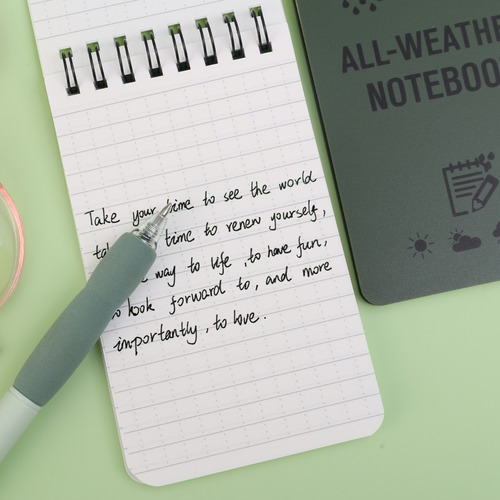 Take your time to see the world
time to renew yourself,
way to life, to have fun,
to look forward to, and more
importantly, to love.
ALL-WEATHE
NOTEBOO